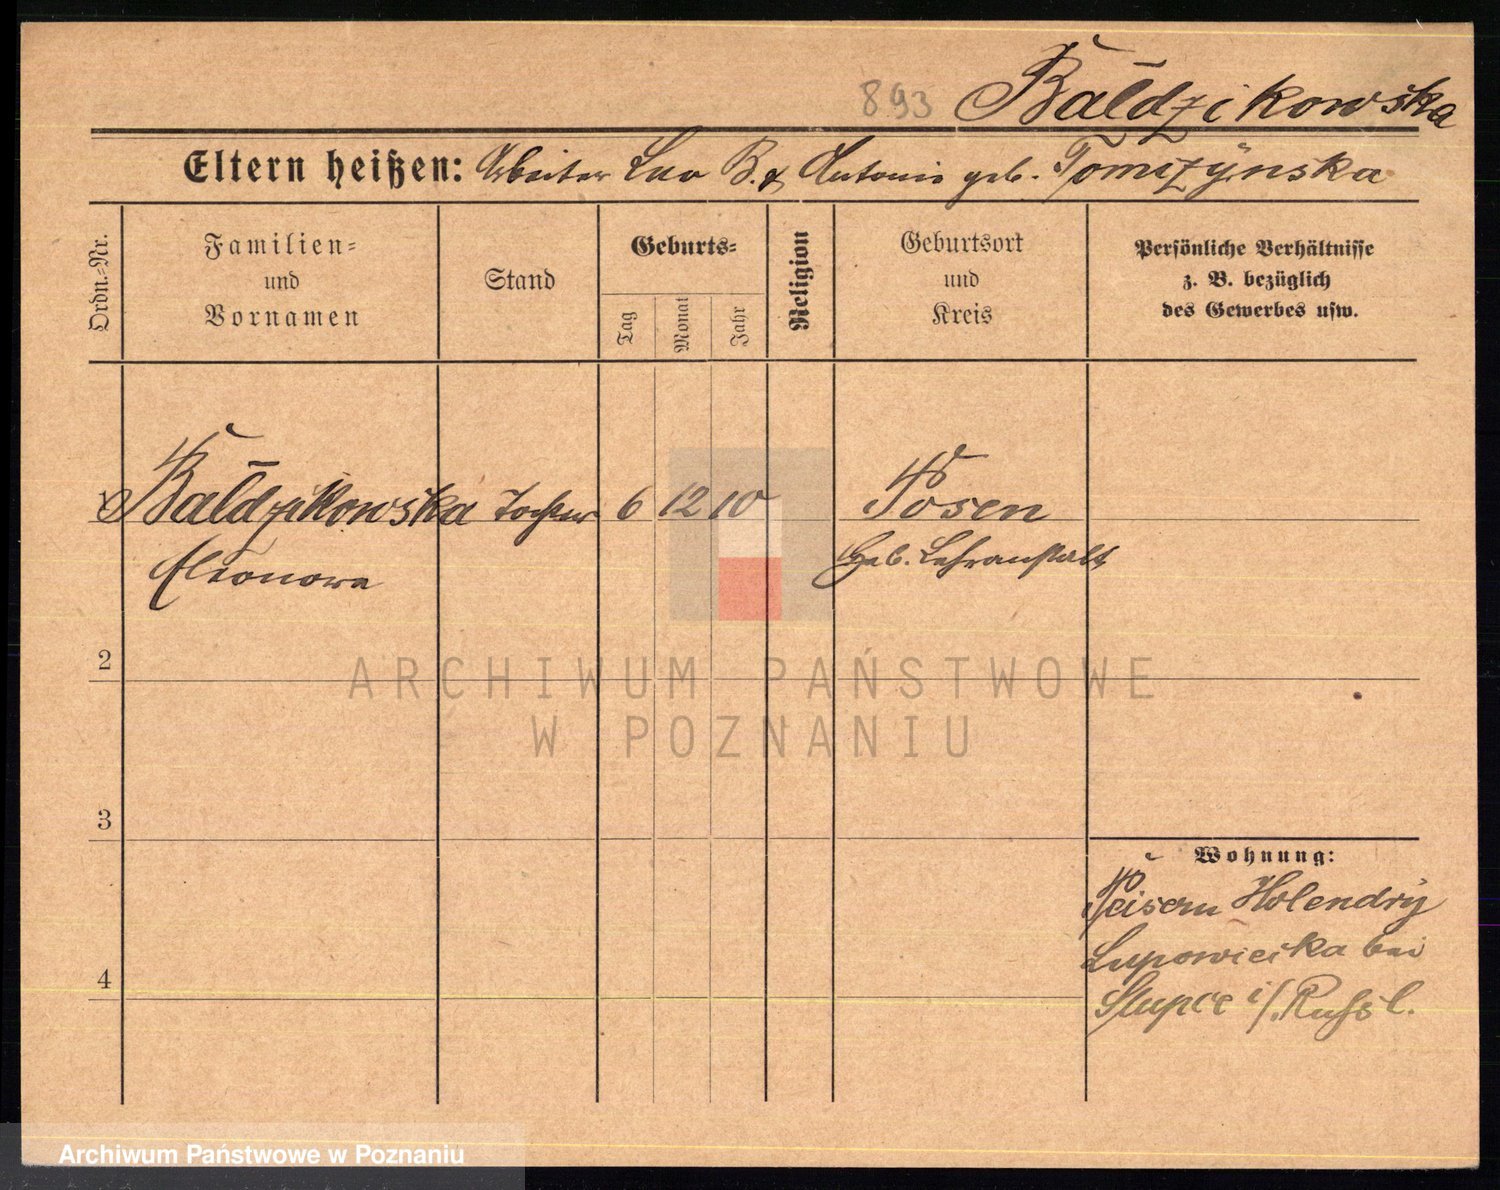 893 Bałdzikowska
Eltern heißen: Arbeiter Leo B. & Antonie geb. Tomczÿnska
Ordn.=Nr.
Familien=
und
Vornamen
Stand
Geburts=
Tag
Monat
Jahr
Religion
Geburtsort
und
Kreis
Persönliche Verhältnisse
z. B. bezüglich
des Gewerbes usw.
1 Bałdzikowska Tochter 6 12 10 Posen
Eleonora Heb. Lehranstalt
2
3
4
Wohnung:
Peisern Holendry
bei
Slupce i/. Russl.
ARCHIWUM PAŃSTWOWE
W POZNANIU
Archiwum Państwowe w Poznaniu